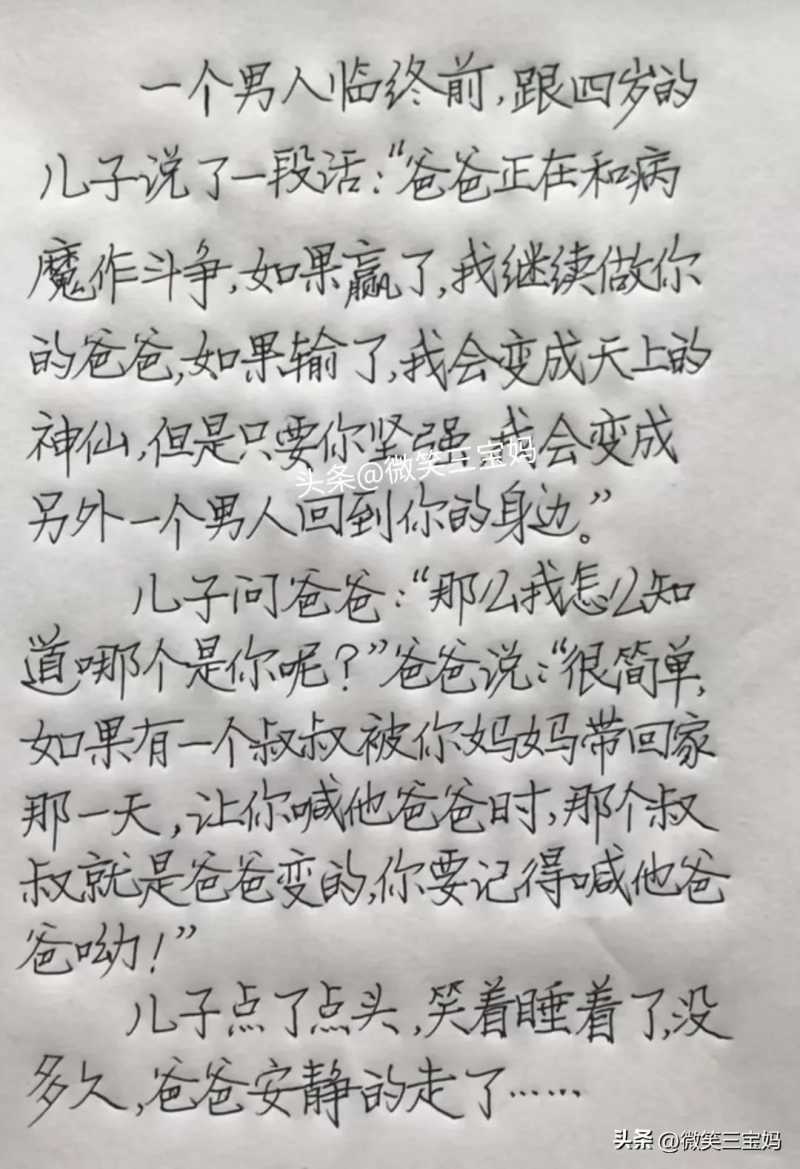 一个男人临终前,跟四岁的
儿子说了一段话:“爸爸正在和病
魔作斗争,如果赢了,我继续做你
的爸爸,如果输了,我会变成天上的
神仙,但是只要你坚强,我会变成
头条@微笑三宝妈
另外一个男人回到你的身边。”
儿子问爸爸:“那么我怎么知
道哪个是你呢?”爸爸说:“很简单,
如果有一个叔叔被你妈妈带回家
那一天,让你喊他爸爸时,那个叔
叔就是爸爸变的,你要记得喊他爸
爸呦!”
儿子点了点头,笑着睡着了,没
多久,爸爸安静的走了……
头条@微笑三宝妈